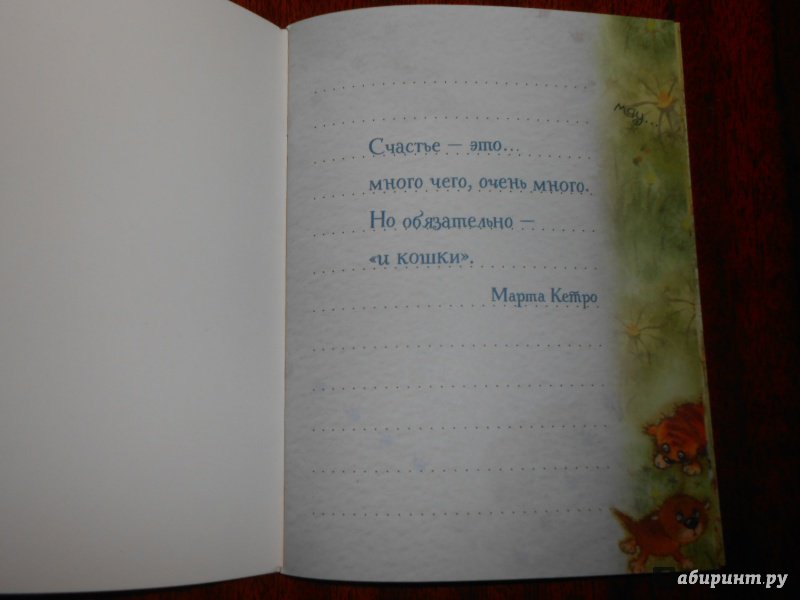 мяу...
Счастье – это...
много чего, очень много.
Но обязательно –
«и кошки».
Марта Кетро
абиринт.ру